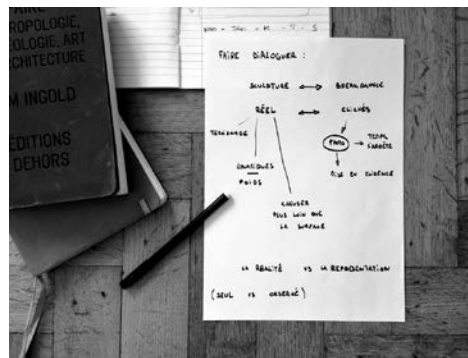 FAIRE
ROPOLOGIE,
ÉOLOGIE, ART
CHITECTURE
M INGOLD
ÉDITIONS
DEHORS
FAIRE DIALOGUER :
SCULPTURE ↔ BREAKDANCE
RÉEL ↔ CLICHÉS
PHOTO → TEMPS
S'ARRÊTE
MISE EN EVIDENCE
POIDS
CREUSER
PLUS LOIN QUE
LA SURFACE
LA RÉALITÉ VS LA REPRESENTATION
( SEUL VS OBSERVÉ )